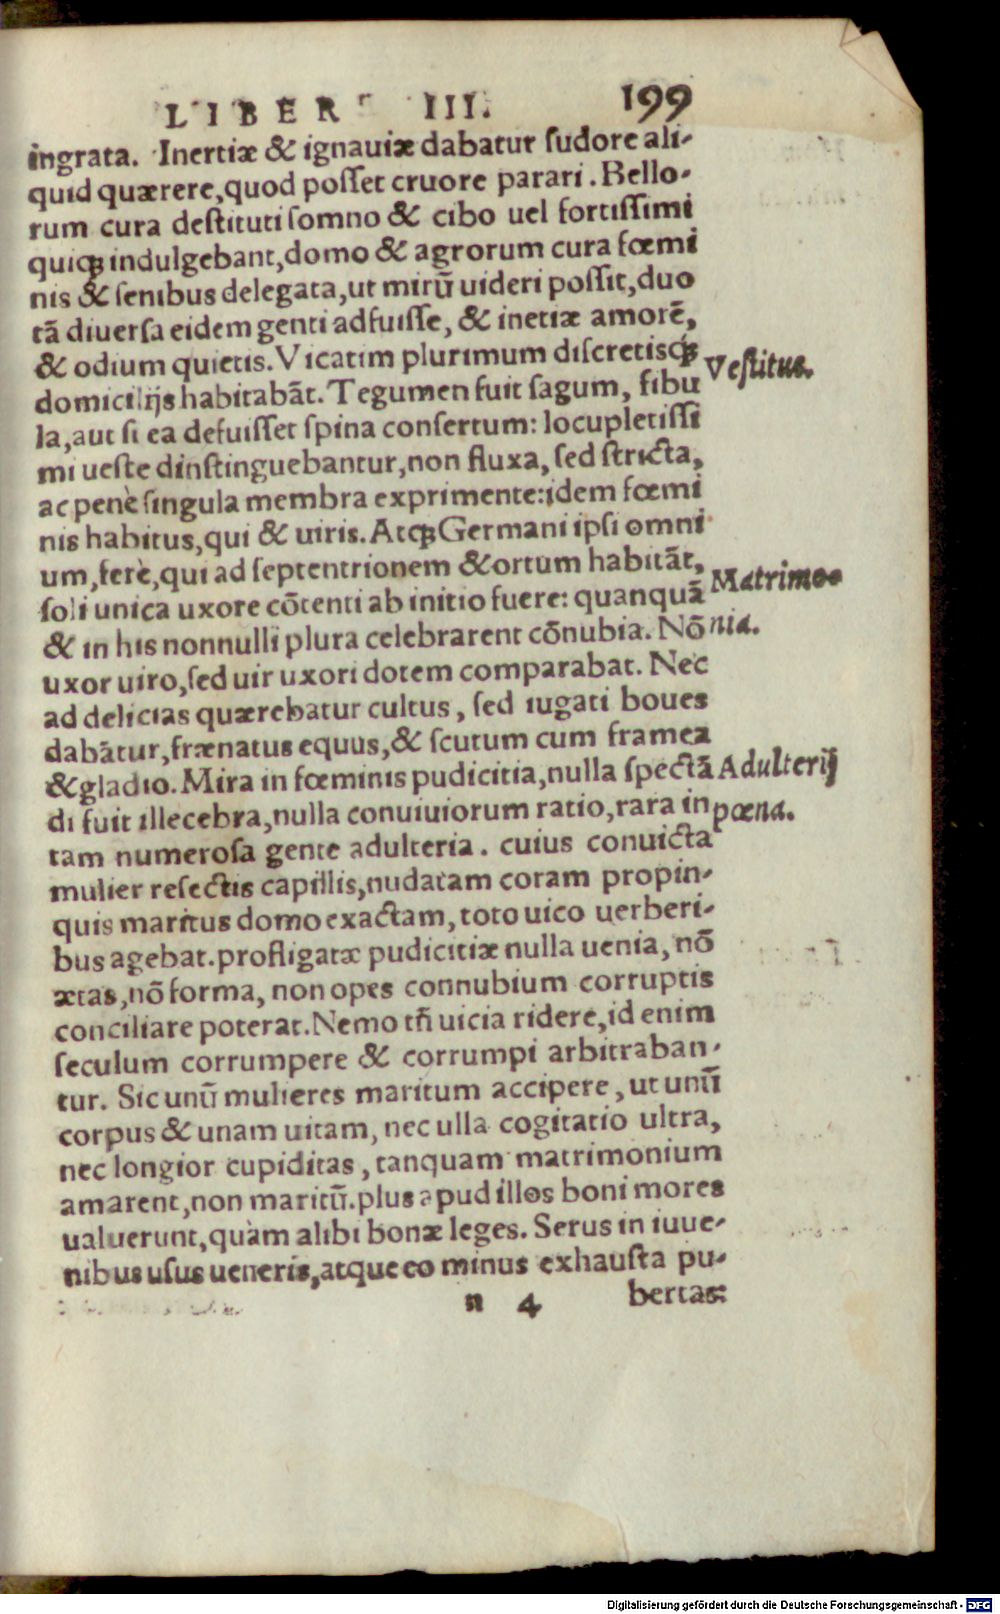 LIBER III. 199
ingrata. Inertiæ & ignauiæ dabatur ſudore ali-
quid quærere, quod poſſet cruore parari. Bello-
rum cura deſtituti ſomno & cibo uel fortiſſimi
quiqꝫ indulgebant, domo & agrorum cura fœmi
nis & ſenibus delegata, ut mirū uideri poſſit, duo
tā diuerſa eidem genti adfuiſſe, & inetiæ amorē,
& odium quietis. Vicatim plurimum diſcretisqꝫ
Veſtitus.
domicilijs habitabāt. Tegumen fuit ſagum, fibu
la, aut ſi ea defuiſſet ſpina conſertum: locupletiſſi
mi ueſte dinſtinguebantur, non fluxa, ſed ſtricta,
ac penè ſingula membra exprimente: idem fœmi
nis habitus, qui & uiris. Atqꝫ Germani ipſi omni
um, ferè, qui ad ſeptentrionem & ortum habitāt,
Matrimo-
ſoli unica uxore cōtenti ab initio fuere: quanquā
& in his nonnulli plura celebrarent cōnubia. Nō
nia.
uxor uiro, ſed uir uxori dotem comparabat. Nec
ad delicias quærebatur cultus, ſed iugati boues
dabātur, frænatus equus, & ſcutum cum framea
& gladio. Mira in fœminis pudicitia, nulla ſpectā
Adulterij
di fuit illecebra, nulla conuiuiorum ratio, rara in
pœna.
tam numeroſa gente adulteria. cuius conuicta
mulier reſectis capillis, nudatam coram propin-
quis maritus domo exactam, toto uico uerberi-
bus agebat. profligatæ pudicitiæ nulla uenia, nō
ætas, nō forma, non opes connubium corruptis
conciliare poterat. Nemo tn̄ uicia ridere, id enim
ſeculum corrumpere & corrumpi arbitraban-
tur. Sic unū mulieres maritum accipere, ut unū
corpus & unam uitam, nec ulla cogitatio ultra,
nec longior cupiditas, tanquam matrimonium
amarent, non maritū. plus apud illos boni mores
ualuerunt, quàm alibi bonæ leges. Serus in iuue-
nibus uſus ueneris, atque eo minus exhauſta pu-
n 4 bertas:
Digitalisierung gefördert durch die Deutsche Forschungsgemeinschaft - DFG